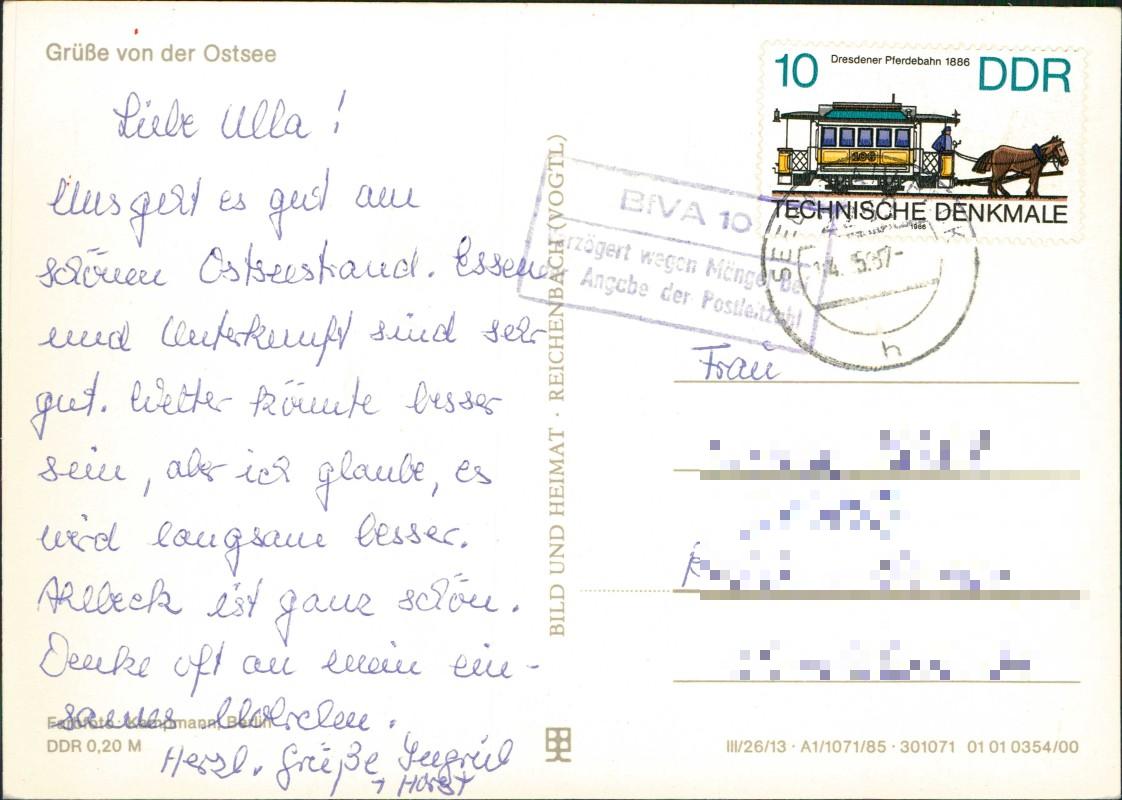 Grüße von der Ostsee
Liebe Ulla!
Uns geht es gut am
schönen Ostseestrand. Essen
und Unterkunft sind sehr
gut. Wetter könnte besser
sein, aber ich glaube, es
wird langsam besser.
Ahlbeck ist ganz schön.
Denke oft an mein ein-
sames
Farbfoto: Kampmann, Berlin
DDR 0,20 M
Herzl. Grüße Ingrid
+ Horst
BILD UND HEIMAT · REICHENBACH (VOGTL)
10 Dresdener Pferdebahn 1886 DDR
106
TECHNISCHE DENKMALE
1986
BfVA 10
Verzögert wegen Mängel bei
der Angabe der Postleitzahl
SEE
5.87-
h
Frau
III/26/13 · A1/1071/85 · 301071 01 01 0354/00